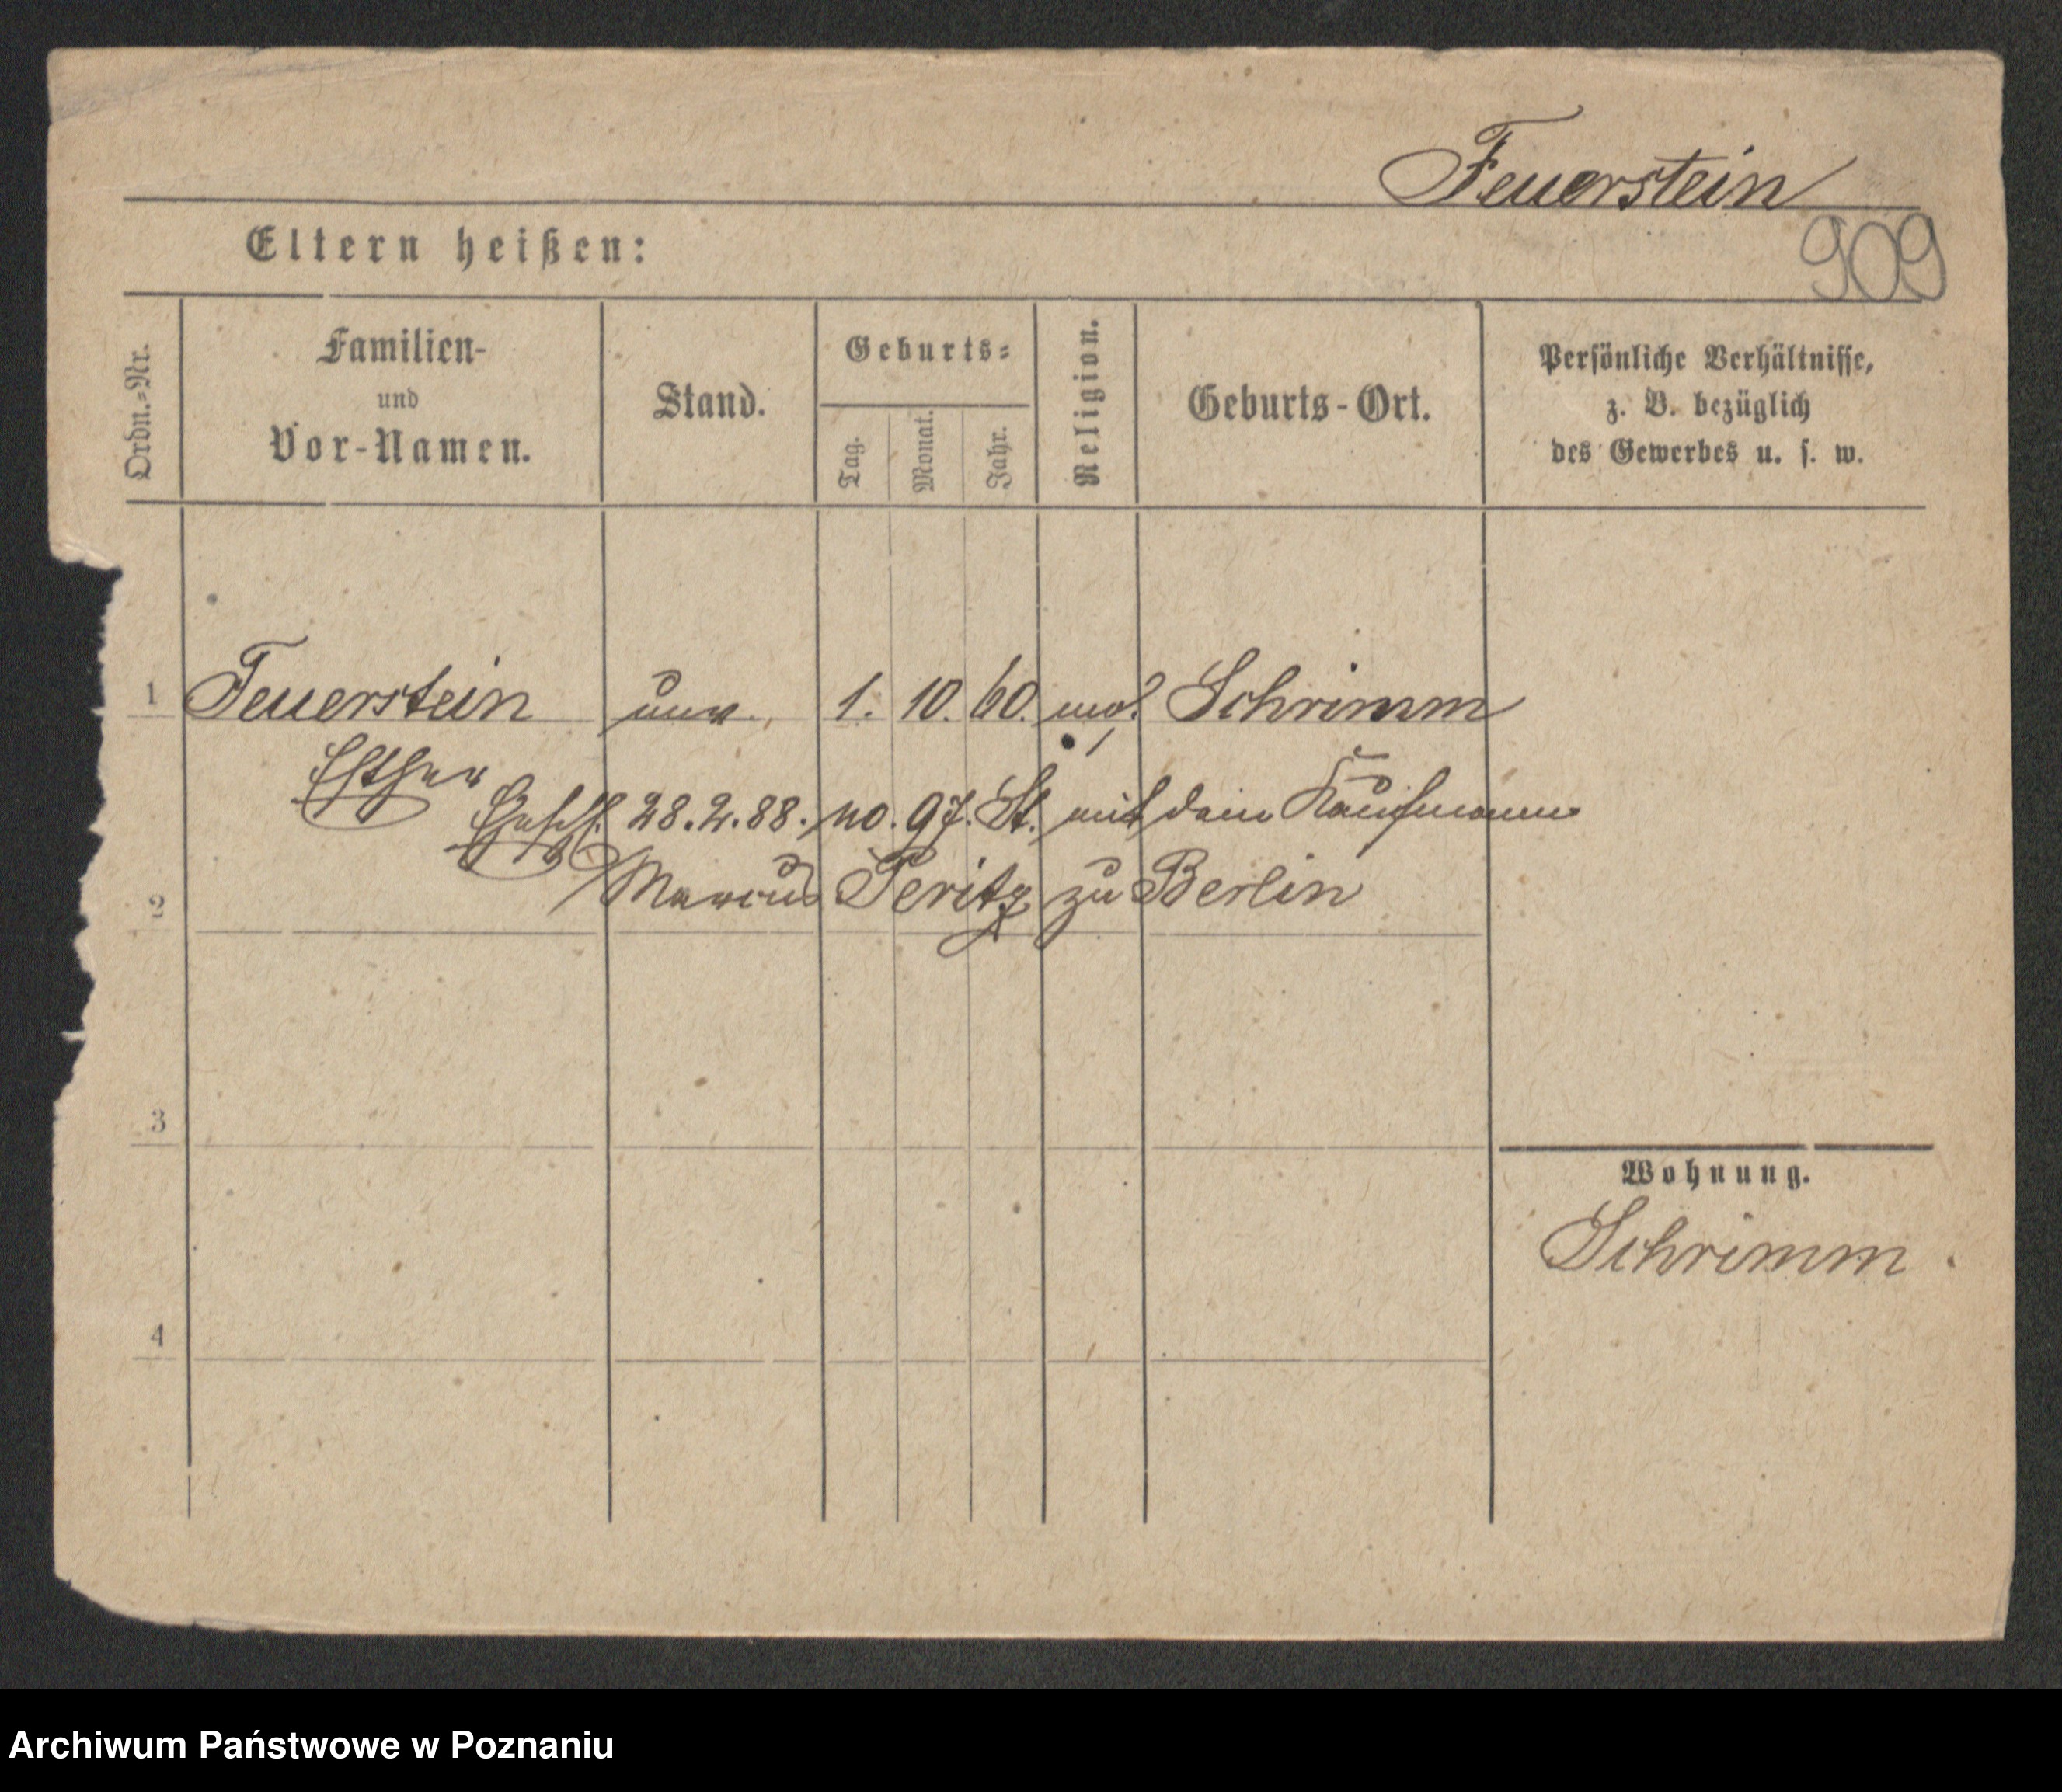 Feuerstein
Eltern heißen:
909
Ordn.=Nr.
Familien-
und
Vor-Namen.
Stand.
Geburts=
Tag.
Monat.
Jahr.
Religion.
Geburts-Ort.
Persönliche Verhältnisse,
z. B. bezüglich
des Gewerbes u. s. w.
1 Feuerstein unv. 1. 10. 60. mos. Schrimm
Esther
Ehesch. 28.2.88. no. 97. St. mit dem Kaufmann
Marcus Peritz zu Berlin
2
3
Wohnung.
Schrimm.
4
Archiwum Państwowe w Poznaniu